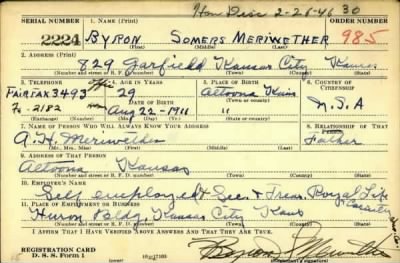 Hon Disc 2-26-46 30
SERIAL NUMBER 1. NAME (Print) ORDER NUMBER
2224 BYRON SOMERS MERIWETHER 985
(First) (Middle) (Last)
2. ADDRESS (Print)
829 Garfield Kansas City Kansas
(Number and street or R. F. D. number) (Town) (County) (State)
3. TELEPHONE 4. AGE IN YEARS 5. PLACE OF BIRTH 6. COUNTRY OF CITIZENSHIP
FAIRFAX 3493 29 Altoona Kans
DATE OF BIRTH (Town or county)
Fa. 2182 Aug 22 - 1911 " U.S.A
(Mo.) (Day) (Yr.) (State or country)
7. NAME OF PERSON WHO WILL ALWAYS KNOW YOUR ADDRESS 8. RELATIONSHIP OF THAT PERSON
A. H. Meriwether Father
(Mr., Mrs., Miss) (First) (Middle) (Last)
9. ADDRESS OF THAT PERSON
Altoona Kansas
(Number and street or R. F. D. number) (Town) (County) (State)
10. EMPLOYER'S NAME
Self employed Sec. & Treas. Royal Life
& Casualty
11. PLACE OF EMPLOYMENT OR BUSINESS
Huron Bldg, Kansas City Kans
(Number and street or R. F. D. number) (Town) (County) (State)
I AFFIRM THAT I HAVE VERIFIED ABOVE ANSWERS AND THAT THEY ARE TRUE.
REGISTRATION CARD
D. S. S. Form 1
Byron S Meriwether
(Registrant's signature)